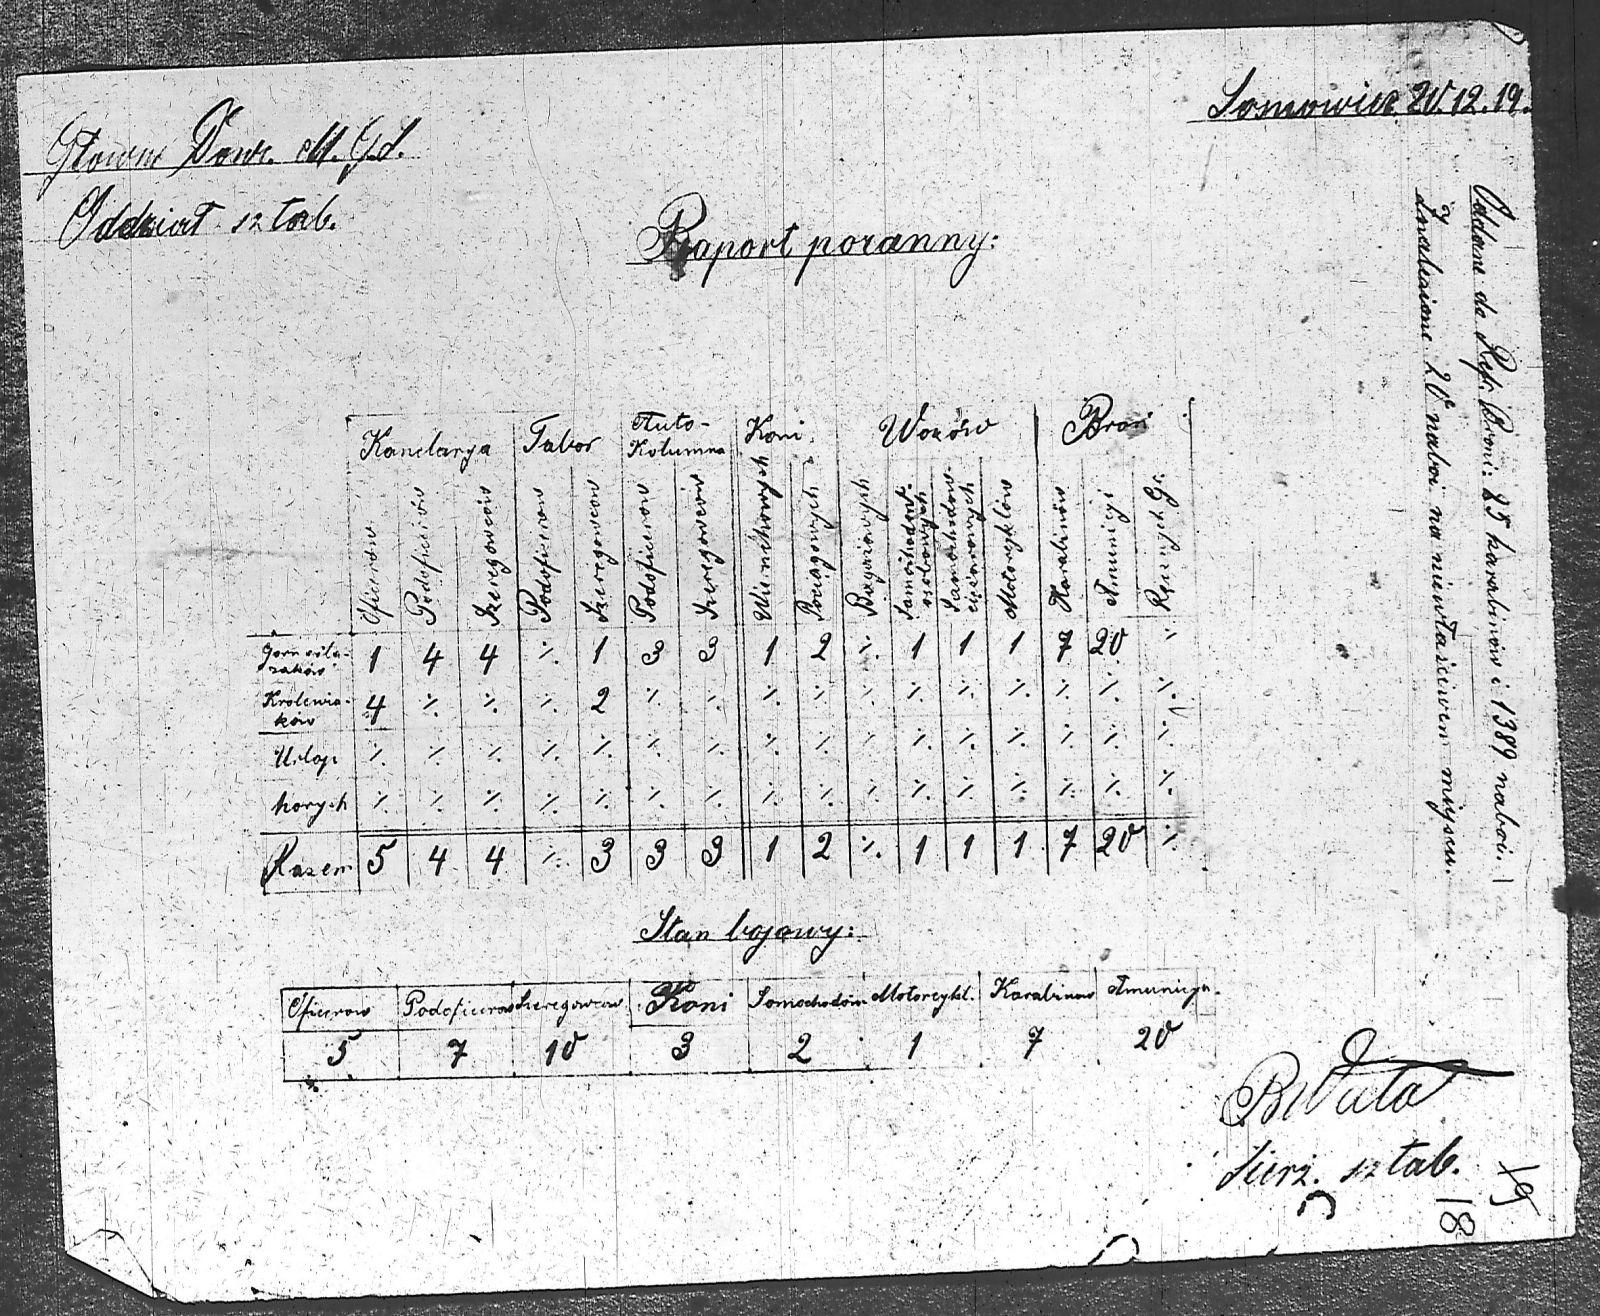 Sosnowice 20.12.19.
Główne Dow. M. G. S.
Oddział sztab.
Raport poranny:
Kancelarya Tabor Auto-Kolumna Koni Wozów Broń
Oficerów Podoficerów Szeregowców Podoficerów Szeregowców Podoficerów Szeregowców Wierzchowych Pociągowych Bagażowych Samochodów osobowych Samochodów ciężarowych Motorcyklów Karabinów Amunicyi Ręcznych Gr.
Górnoślązaków 1 4 4 ·/. 1 3 3 1 2 ·/. 1 1 1 7 20 ·/.
Królewiaków 4 ·/. ·/. ·/. 2 ·/. ·/. ·/. ·/. ·/. ·/. ·/. ·/. ·/. ·/. ·/.
Urlop ·/. ·/. ·/. ·/. ·/. ·/. ·/. ·/. ·/. ·/. ·/. ·/. ·/. ·/. ·/. ·/.
horych ·/. ·/. ·/. ·/. ·/. ·/. ·/. ·/. ·/. ·/. ·/. ·/. ·/. ·/. ·/. ·/.
Razem 5 4 4 ·/. 3 3 3 1 2 ·/. 1 1 1 7 20 ·/.
Stan bojowy:
Oficerow Podoficerow Szeregowcow Koni Somochodów Motorcykl. Karabinow Amunicya.
5 7 10 3 2 1 7 20
Oddane do Ref. Broni: 25 karabinów i 1389 naboi.
Znalezione 20 naboi na niewłaściwem miejscu.
sierż. sztab.
19
18